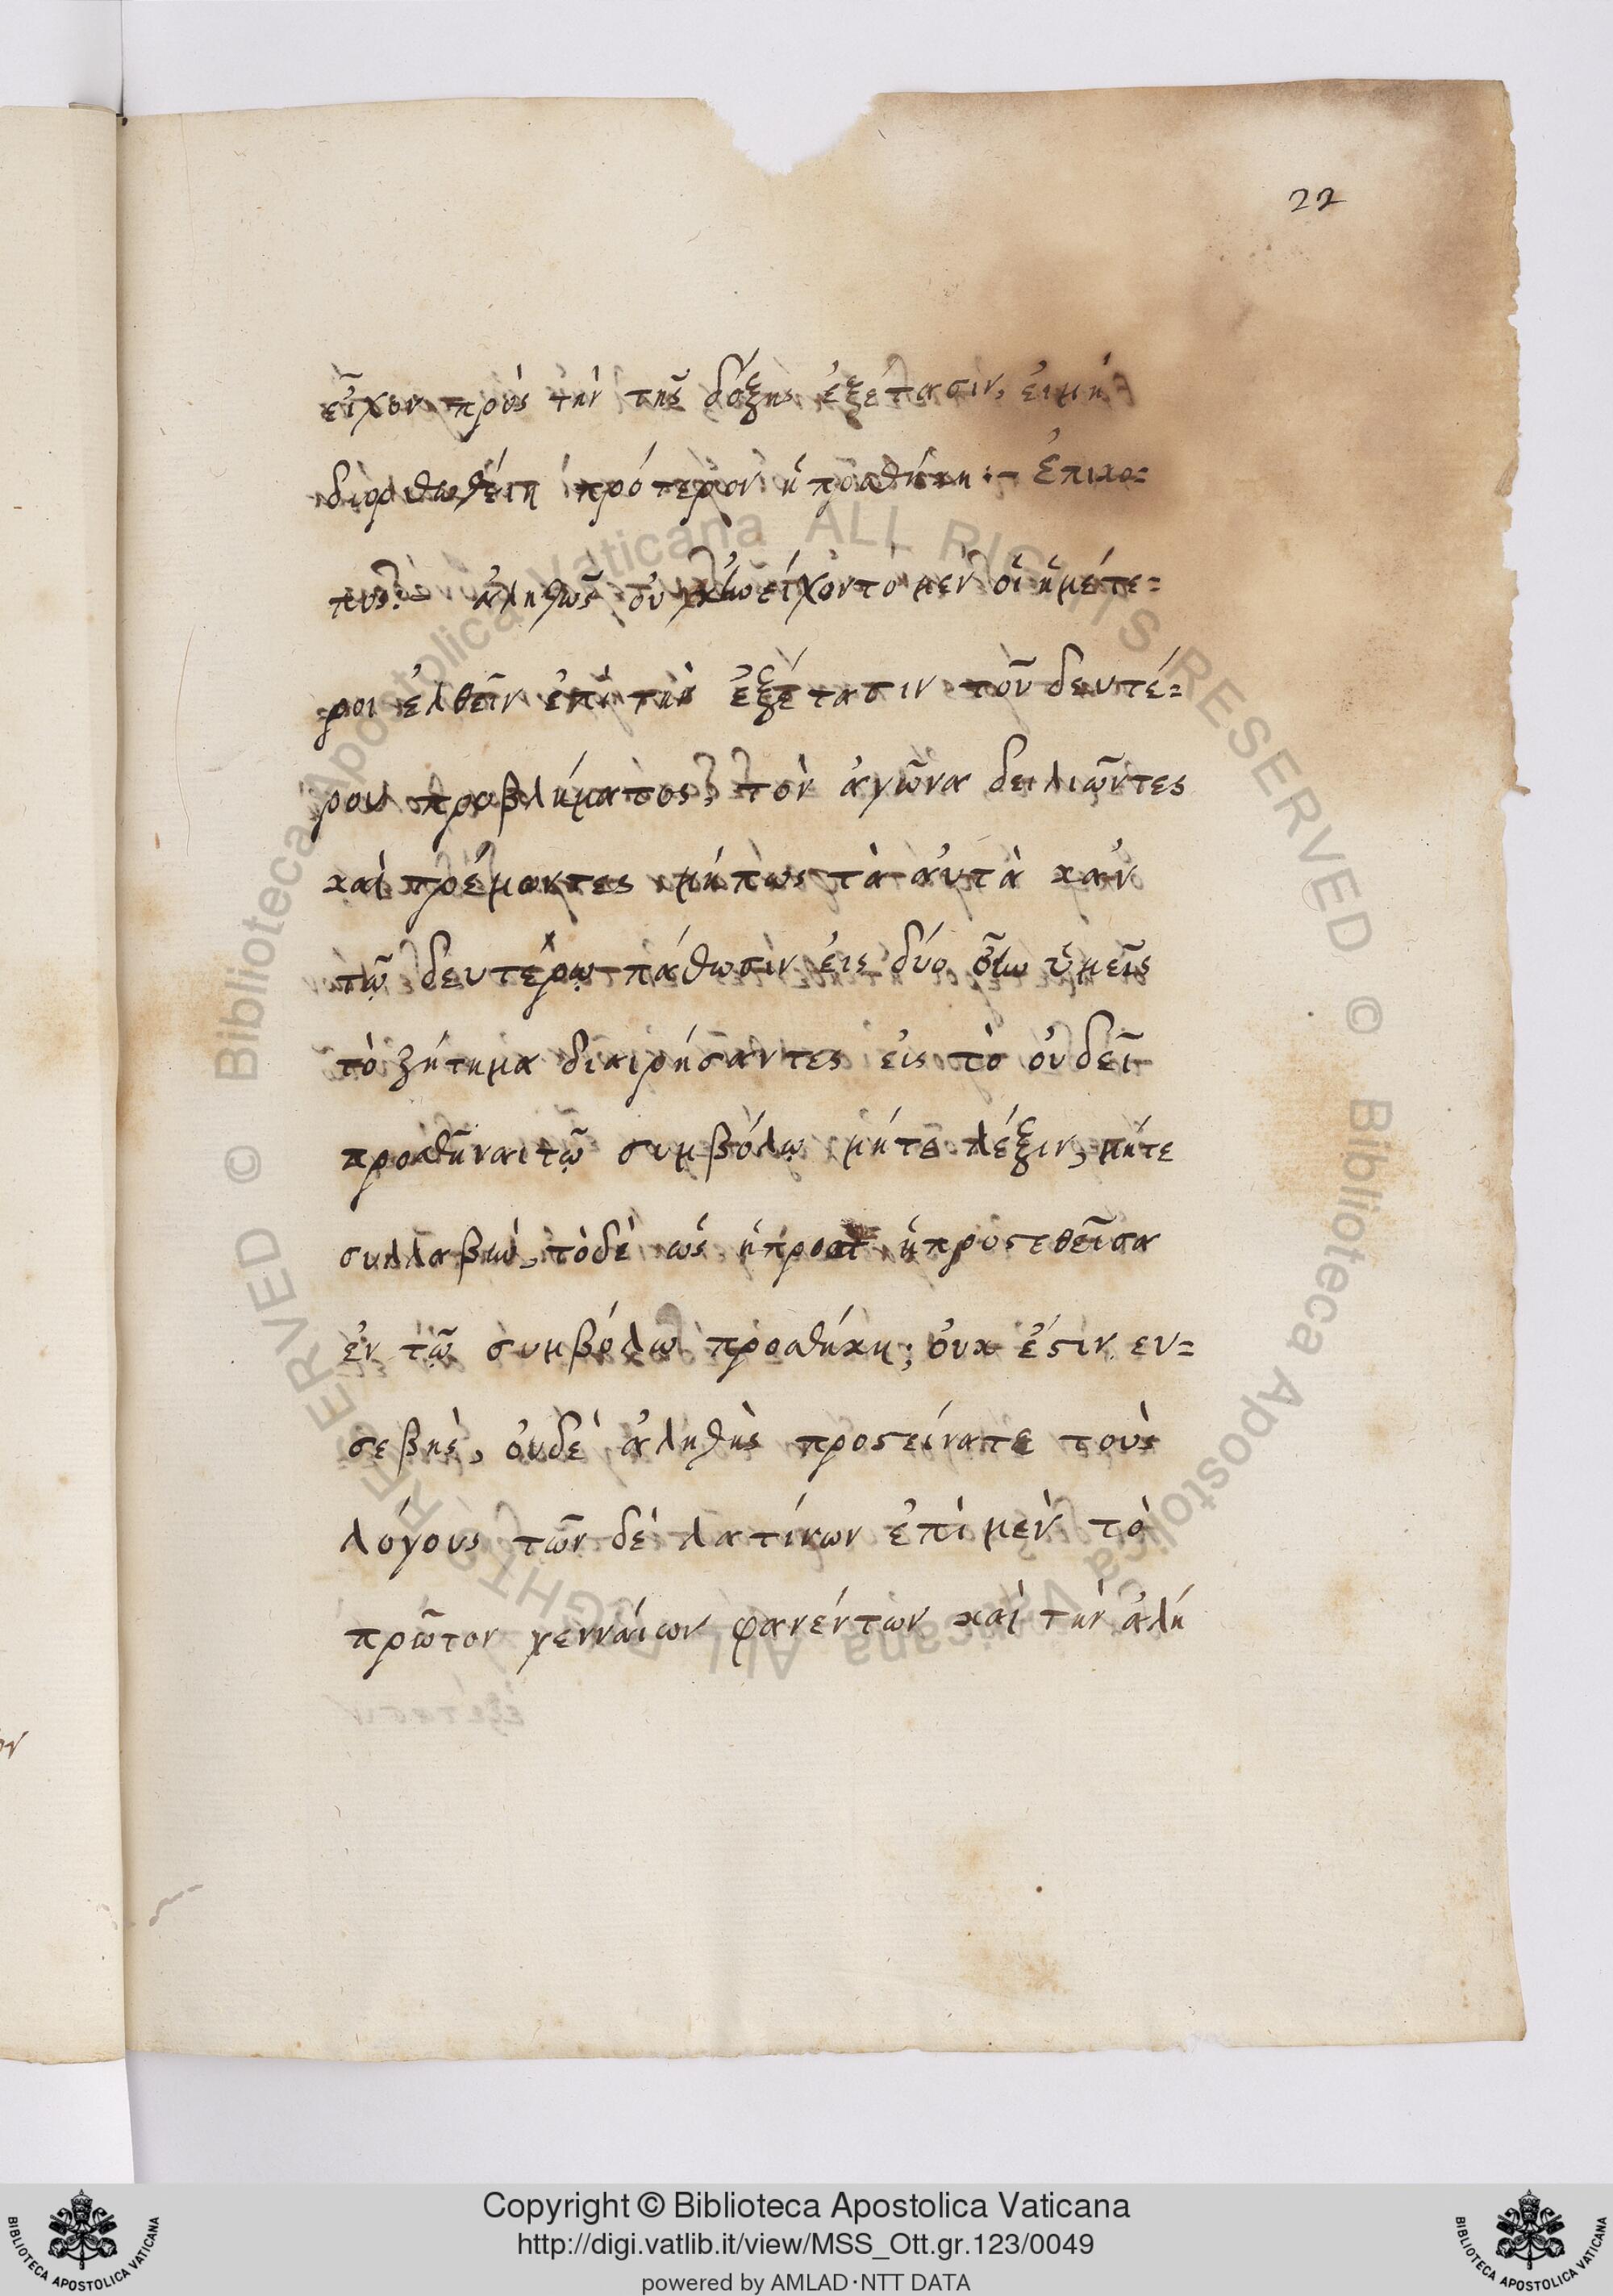 22
εἶχον πρὸς τὴν τῆς δόξης ἐξέτασιν, εἰμὴ
διορθωθείη πρότερον ἡ προσθήκη :- Ἐπισκο=
πος :- ἀληθῶς οὐκ εἴχοντο μὲν οἱ ἡμέτε=
ροι ἐλθεῖν ἐπὶ τὴν ἐξέτασιν τοῦ δευτέ=
ρου προβλήματος, τὸν ἀγῶνα δειλιῶντες
καὶ τρέμοντες μήπως τὰ αὐτὰ κἀν
τῷ δευτέρῳ πάθωσιν, εἰς δύο οὕτω ὑμεῖς
τὸ ζήτημα διαιρήσαντες εἰς τὸ οὐ δεῖ
προσθῆναι τῷ συμβόλῳ μήτε λέξιν, μήτε
συλλαβὴν, τὸ δὲ ὡς ἡ προστεθεῖσα
ἐν τῷ συμβόλῳ προσθήκη; οὐκ ἔστιν ευ=
σεβὴς, οὐδὲ ἀληθὴς προτείνατε τοὺς
λόγους τῶν δὲ λατίνων ἐπὶ μὲν τὸ
πρῶτον γενναίων φανέντων καὶ τὴν ἀλή
Copyright © Biblioteca Apostolica Vaticana
http://digi.vatlib.it/view/MSS_Ott.gr.123/0049
powered by AMLAD·NTT DATA
BIBLIOTECA APOSTOLICA VATICANA
BIBLIOTECA APOSTOLICA VATICANA
© Biblioteca Apostolica Vaticana ALL RIGHTS RESERVED
© Biblioteca Apostolica Vaticana ALL RIGHTS RESERVED